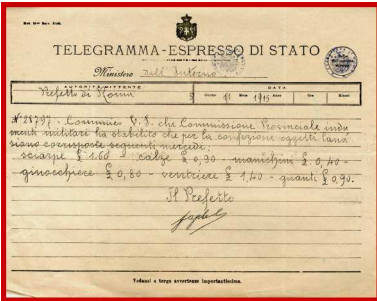 TELEGRAMMA-ESPRESSO DI STATO
Ministero dell'Interno
AUTORITÀ MITTENTE
DATA
Prefetto di Roma
Giorno 11 Mese 1915 Anno Ora Minuti
N° 28797. Comunico V. S. che Commissione Provinciale indu
menti militari ha stabilito che per la confezione oggetti lana
siano corrisposte seguenti mercedi:
sciarpe £ 1.60 - calze £ 0,90 - manichini £. 0,40 -
ginocchiere £ 0,80 - ventriere £ 1,40 - guanti £ 0,90.
Il Prefetto
Vedansi a tergo avvertenze importantissime.